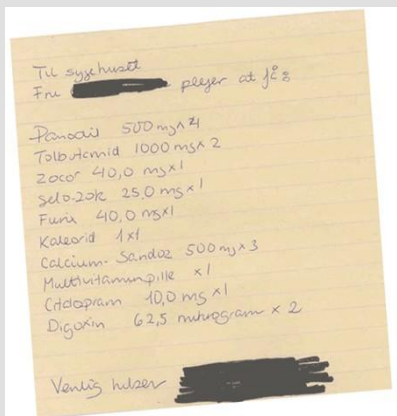 Til sygehuset
Fru plejer at få:
Panodil 500 mg x 4
Tolbutamid 1000 mg x 2
Zocor 40,0 mg x 1
Selo-zok 25,0 mg x 1
Furix 40,0 mg x 1
Kaleorid 1 x 1
Calcium-Sandoz 500 mg x 3
Multivitaminpille x 1
Citalopram 10,0 mg x 1
Digoxin 62,5 mikrogram x 2
Venlig hilsen